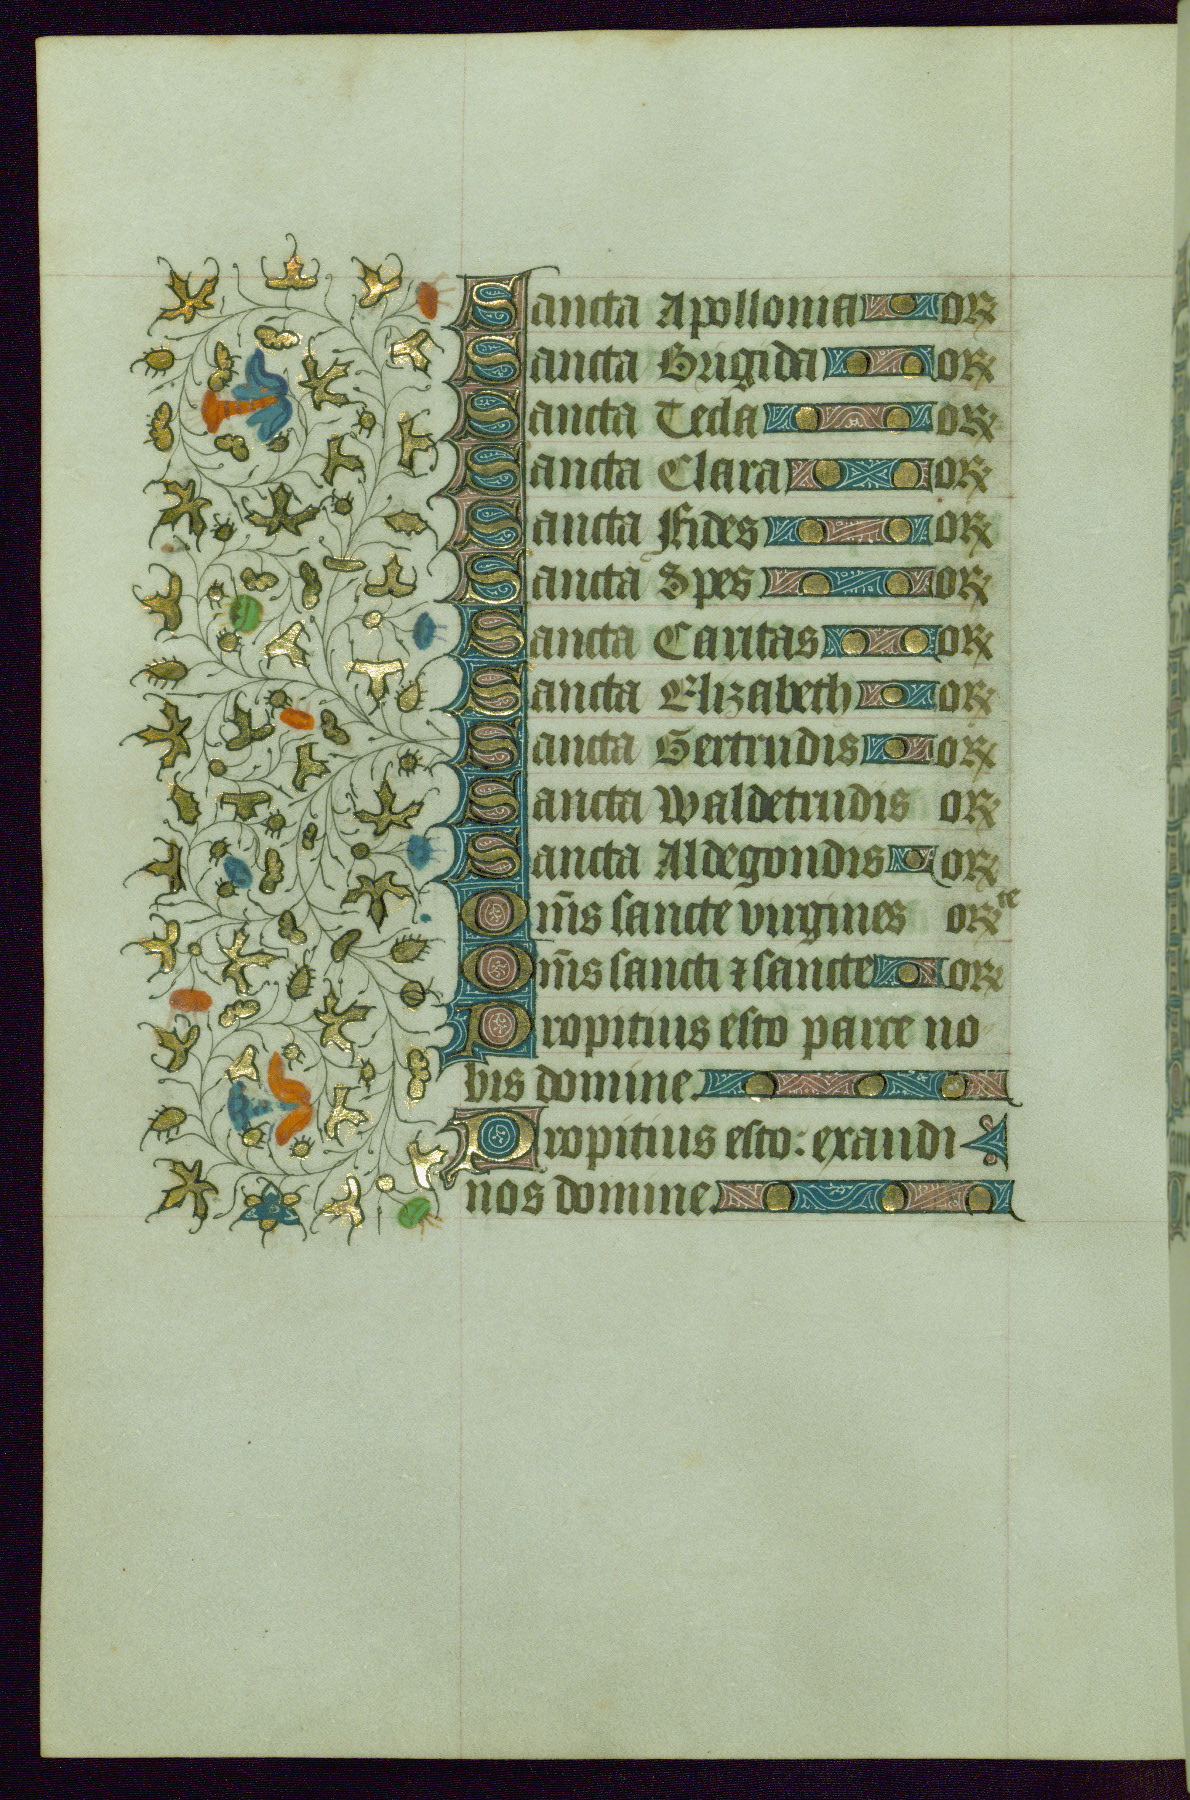 Sancta Apollonia or
Sancta Brigida or
Sancta Tecla or
Sancta Clara or
Sancta Fides or
Sancta Spes or
Sancta Caritas or
Sancta Elizabeth or
Sancta Gertrudis or
Sancta Waldetrudis or
Sancta Aldegondis or
Om̅s sancte virgines orte
Om̅s sancti ⁊ sancte or
Propitius esto parce no
bis domine.
Propitius esto: exaudi
nos domine.